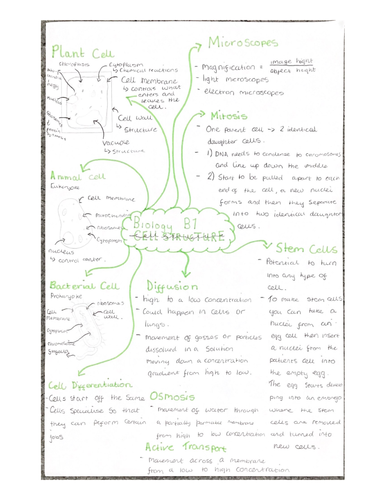 Plant Cell
Cytoplasm
↳ Chemical reactions
Cell Membrane
↳ controls what
enters and
leaves the
cell.
Cell Wall
↳ Structure
Vacuole
↳ Structure
Microscopes
- Magnification = image height
object height
- light microscopes
- electron microscopes
Mitosis
- One parent cell → 2 identical
daughter cells.
- 1) DNA needs to condense to chromosomes
and line up down the middle
- 2) Start to be pulled apart to either
end of the cell, a new nuclei
forms and then they separate
into two identical daughter
cells.
Animal Cell
Eukaryote
Cell Membrane
Ribosomes
Cytoplasm
nucleus
↳ control center.
Biology B1
CELL STRUCTURE
Stem Cells
- Potential to turn
into any type of
cell.
- To make stem cells
you can take a
nuclei from an
egg cell then insert
a nuclei from the
patients cell into
the empty egg.
The egg starts develo
ping into an embryo
where the stem
cells are removed
and turned into
new cells.
Bacterial Cell
Prokaryote
ribosomes
Cell
Membrane
cell
wall.
Diffusion
- high to a low concentration
- Could happen in cells or
lungs.
- Movement of gasses or particles
dissolved in a solution
moving down a concentration
gradient from high to low.
Cell Differentiation
- Cells start off the same
- Cells specialise so that
they can perform certain
jobs.
Osmosis
- Movement of water through
a partially permeable membrane
from high to low concentration
Active Transport
- Movement across a membrane
from a low to high concentration